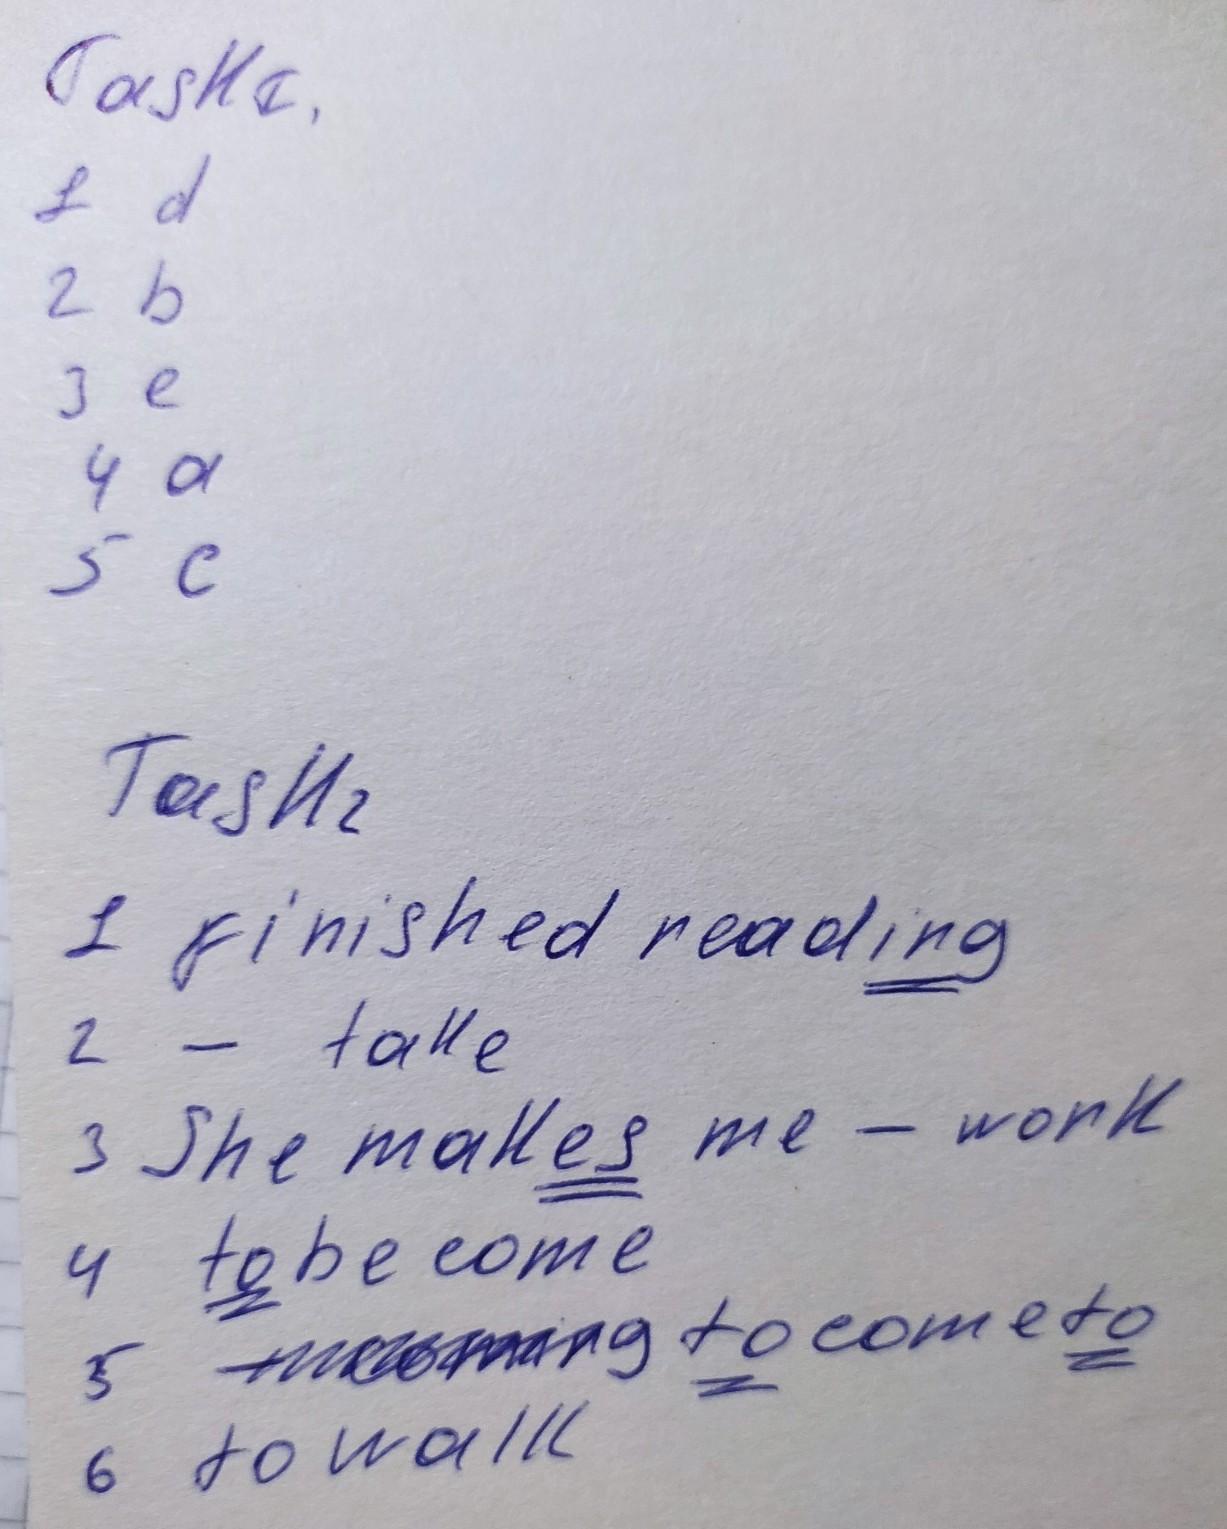 Task 1.
1 d
2 b
3 e
4 a
5 c
Task 2
1 finished reading
2 – take
3 She makes me – work
4 to become
5 to come to
6 to walk